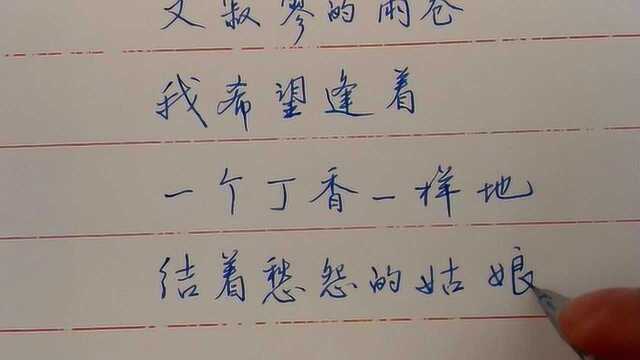 又寂寥的雨巷
我希望逢着
一个丁香一样地
结着愁怨的姑娘